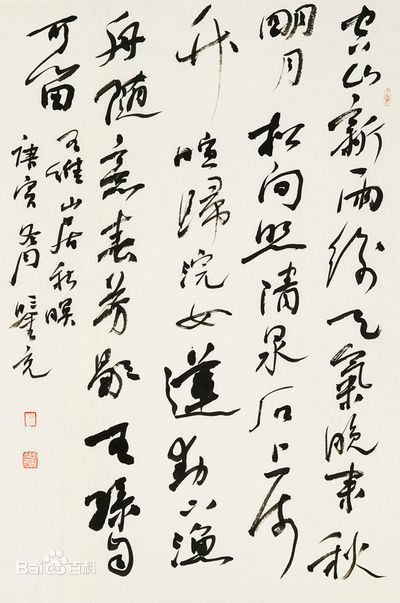 空山新雨後天氣晚來秋
明月松向照清泉石上流
竹喧歸浣女蓮動下漁
舟随意春芳歇王孫自
可留
王維山居秋暝
庚寅
Bai百科